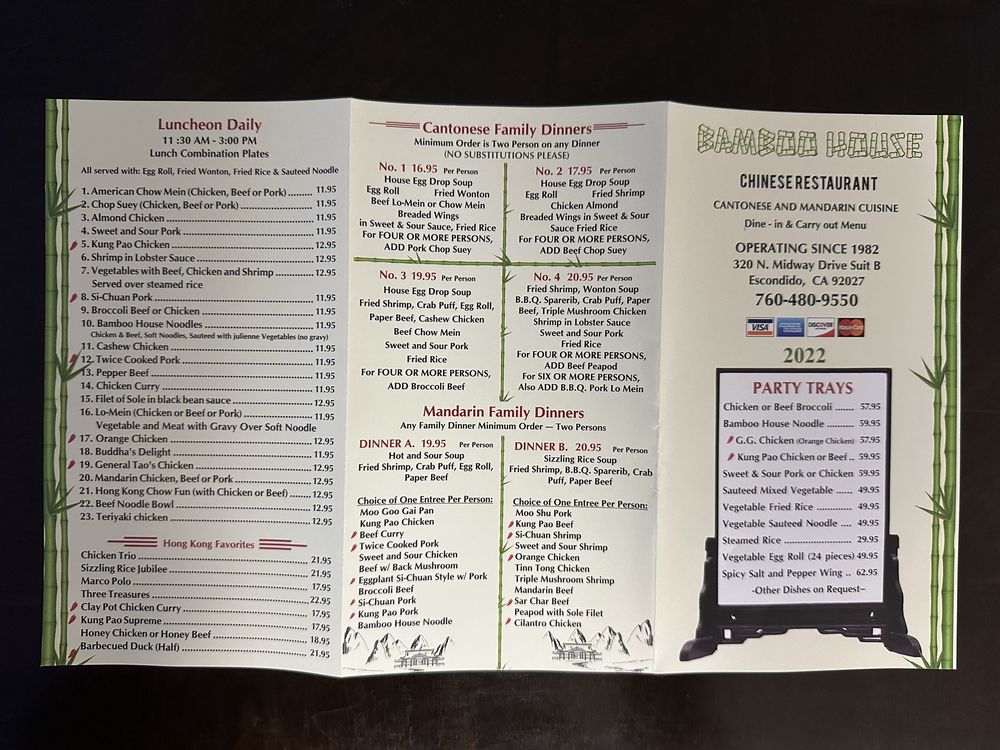 Luncheon Daily
11 :30 AM - 3:00 PM
Lunch Combination Plates
All served with: Egg Roll, Fried Wonton, Fried Rice & Sauteed Noodle
1. American Chow Mein (Chicken, Beef or Pork) ........ 11.95
2. Chop Suey (Chicken, Beef or Pork) ........ 11.95
3. Almond Chicken ........ 11.95
4. Sweet and Sour Pork ........ 11.95
5. Kung Pao Chicken ........ 12.95
6. Shrimp in Lobster Sauce ........ 12.95
7. Vegetables with Beef, Chicken and Shrimp ........ 12.95
Served over steamed rice
8. Si-Chuan Pork ........ 11.95
9. Broccoli Beef or Chicken ........ 11.95
10. Bamboo House Noodles ........ 11.95
Chicken & Beef, Soft Noodles, Sauteed with julienne Vegetables (no gravy)
11. Cashew Chicken ........ 11.95
12. Twice Cooked Pork ........ 11.95
13. Pepper Beef ........ 11.95
14. Chicken Curry ........ 11.95
15. Filet of Sole in black bean sauce ........ 12.95
16. Lo-Mein (Chicken or Beef or Pork) ........ 11.95
Vegetable and Meat with Gravy Over Soft Noodle
17. Orange Chicken ........ 12.95
18. Buddha's Delight ........ 11.95
19. General Tao's Chicken ........ 12.95
20. Mandarin Chicken, Beef or Pork ........ 12.95
21. Hong Kong Chow Fun (with Chicken or Beef) ........ 12.95
22. Beef Noodle Bowl ........ 12.95
23. Teriyaki chicken ........ 12.95
Hong Kong Favorites
Chicken Trio ........ 21.95
Sizzling Rice Jubilee ........ 21.95
Marco Polo ........ 17.95
Three Treasures ........ 22.95
Clay Pot Chicken Curry ........ 17.95
Kung Pao Supreme ........ 17.95
Honey Chicken or Honey Beef ........ 18.95
Barbecued Duck (Half) ........ 21.95
Cantonese Family Dinners
Minimum Order is Two Person on any Dinner
(NO SUBSTITUTIONS PLEASE)
No. 1 16.95 Per Person
House Egg Drop Soup
Egg Roll Fried Wonton
Beef Lo-Mein or Chow Mein
Breaded Wings
in Sweet & Sour Sauce, Fried Rice
For FOUR OR MORE PERSONS,
ADD Pork Chop Suey
No. 2 17.95 Per Person
House Egg Drop Soup
Egg Roll Fried Shrimp
Chicken Almond
Breaded Wings in Sweet & Sour
Sauce Fried Rice
For FOUR OR MORE PERSONS,
ADD Beef Chop Suey
No. 3 19.95 Per Person
House Egg Drop Soup
Fried Shrimp, Crab Puff, Egg Roll,
Paper Beef, Cashew Chicken
Beef Chow Mein
Sweet and Sour Pork
Fried Rice
For FOUR OR MORE PERSONS,
ADD Broccoli Beef
No. 4 20.95 Per Person
Fried Shrimp, Wonton Soup
B.B.Q. Sparerib, Crab Puff, Paper
Beef, Triple Mushroom Chicken
Shrimp in Lobster Sauce
Sweet and Sour Pork
Fried Rice
For FOUR OR MORE PERSONS,
ADD Beef Peapod
For SIX OR MORE PERSONS,
Also ADD B.B.Q. Pork Lo Mein
Mandarin Family Dinners
Any Family Dinner Minimum Order — Two Persons
DINNER A. 19.95 Per Person
Hot and Sour Soup
Fried Shrimp, Crab Puff, Egg Roll,
Paper Beef
Choice of One Entree Per Person:
Moo Goo Gai Pan
Kung Pao Chicken
Beef Curry
Twice Cooked Pork
Sweet and Sour Chicken
Beef w/ Back Mushroom
Eggplant Si-Chuan Style w/ Pork
Broccoli Beef
Si-Chuan Pork
Kung Pao Pork
Bamboo House Noodle
DINNER B. 20.95 Per Person
Sizzling Rice Soup
Fried Shrimp, B.B.Q. Sparerib, Crab
Puff, Paper Beef
Choice of One Entree Per Person:
Moo Shu Pork
Kung Pao Beef
Si-Chuan Shrimp
Sweet and Sour Shrimp
Orange Chicken
Tinn Tong Chicken
Triple Mushroom Shrimp
Mandarin Beef
Sar Char Beef
Peapod with Sole Filet
Cilantro Chicken
BAMBOO HOUSE
CHINESE RESTAURANT
CANTONESE AND MANDARIN CUISINE
Dine - in & Carry out Menu
OPERATING SINCE 1982
320 N. Midway Drive Suit B
Escondido, CA 92027
760-480-9550
VISA AMERICAN EXPRESS DISCOVER MasterCard
2022
PARTY TRAYS
Chicken or Beef Broccoli ....... 57.95
Bamboo House Noodle ....... 59.95
G.G. Chicken (Orange Chicken) 57.95
Kung Pao Chicken or Beef .. 59.95
Sweet & Sour Pork or Chicken 59.95
Sauteed Mixed Vegetable ...... 49.95
Vegetable Fried Rice ....... 49.95
Vegetable Sauteed Noodle .... 49.95
Steamed Rice ....... 29.95
Vegetable Egg Roll (24 pieces) 49.95
Spicy Salt and Pepper Wing .. 62.95
-Other Dishes on Request-